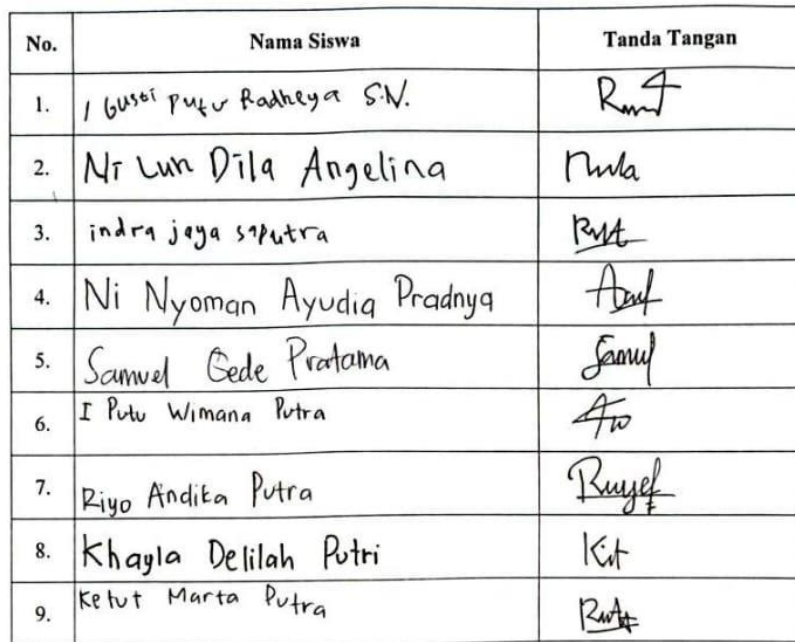 No. Nama Siswa Tanda Tangan
1. I Gusti Putu Radheya S.N.
2. Ni Luh Dila Angelina
3. indra jaya saputra
4. Ni Nyoman Ayudia Pradnya
5. Samuel Gede Pratama
6. I Putu Wimana Putra
7. Riyo Andika Putra
8. Khayla Delilah Putri
9. Ketut Marta Putra